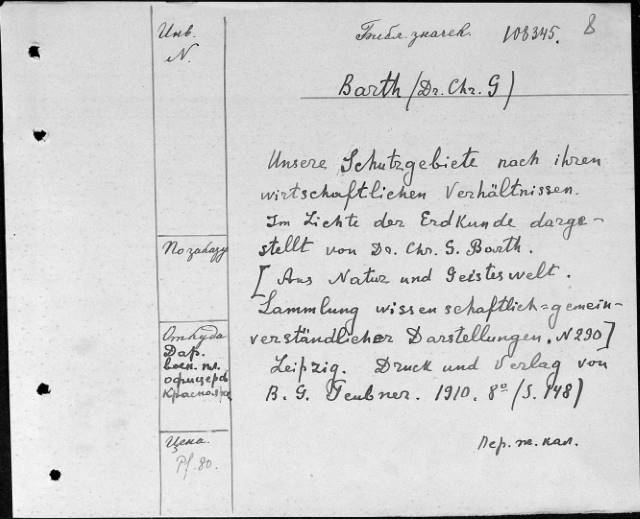 Инв.
N.
Библ. значек. 108345. 8
Barth (Dr. Chr. G)
Unsere Schutzgebiete nach ihren
wirtschaftlichen Verhältnissen.
Im Lichte der Erdkunde darge-
stellt von Dr. Chr. G. Barth.
[Aus Natur und Geisteswelt.
Sammlung wissenschaftlich=gemein-
verständlicher Darstellungen. N 290]
Leipzig. Druck und Verlag von
B. G. Teubner. 1910. 8º (S. 148)
Пер. т. кал.
По заказу
Откуда
Дар.
воен. пл.
офицеров
Красноярс
Цена.
Pf. 80.